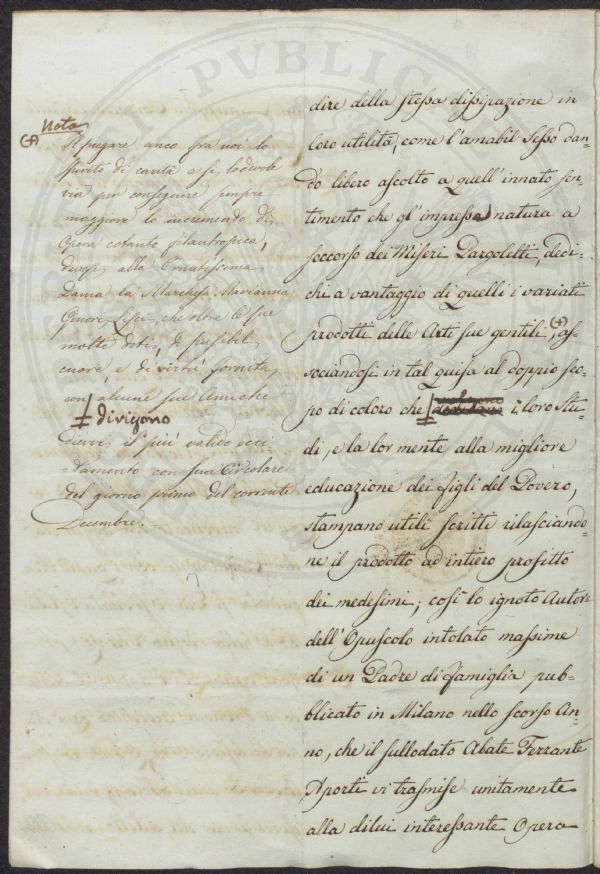 dire della stessa dissipazione in
loro utilità, come l'amabil sesso dan-
do libero ascolto a quell'innato sen-
timento che gl'impresse natura a
soccorso dei Miseri Pargoletti, dedi-
chi a vantaggio di quelli i varianti
prodotti delle Arti sue gentili, (+) as-
sociandosi in tal guisa al doppio sco-
po di coloro che ‡ i loro stu-
di, e la lor mente alla migliore
educazione dei figli del Povero,
stampano utili scritti rilasciando-
ne il prodotto ad intiero profitto
dei medesimi; così lo ignoto Autore
dell'Opuscolo intolato massime
di un Padre di famiglia pub-
blicato in Milano nello scorso An-
no, che il sullodato Abate Ferrante
Aporti vi trasmise unitamente
alla dilui interessante Opera
Nota
(+) A piegare anco fra noi lo
spirito di carità a sì lodevole
via per conseguire sempre
maggiore lo incremento di
Opera cotanto filantropica,
diressi alla Ornatissima
Dama la Marchesa Marianna
che oltre le sue
molte doti, di sensibil
cuore, e di virtù fornita,
con alcune sue Amiche
‡ divigono
il più valido ecci-
tamento con sua Circolare
del giorno primo del corrente
Decembre.
PVBLIC